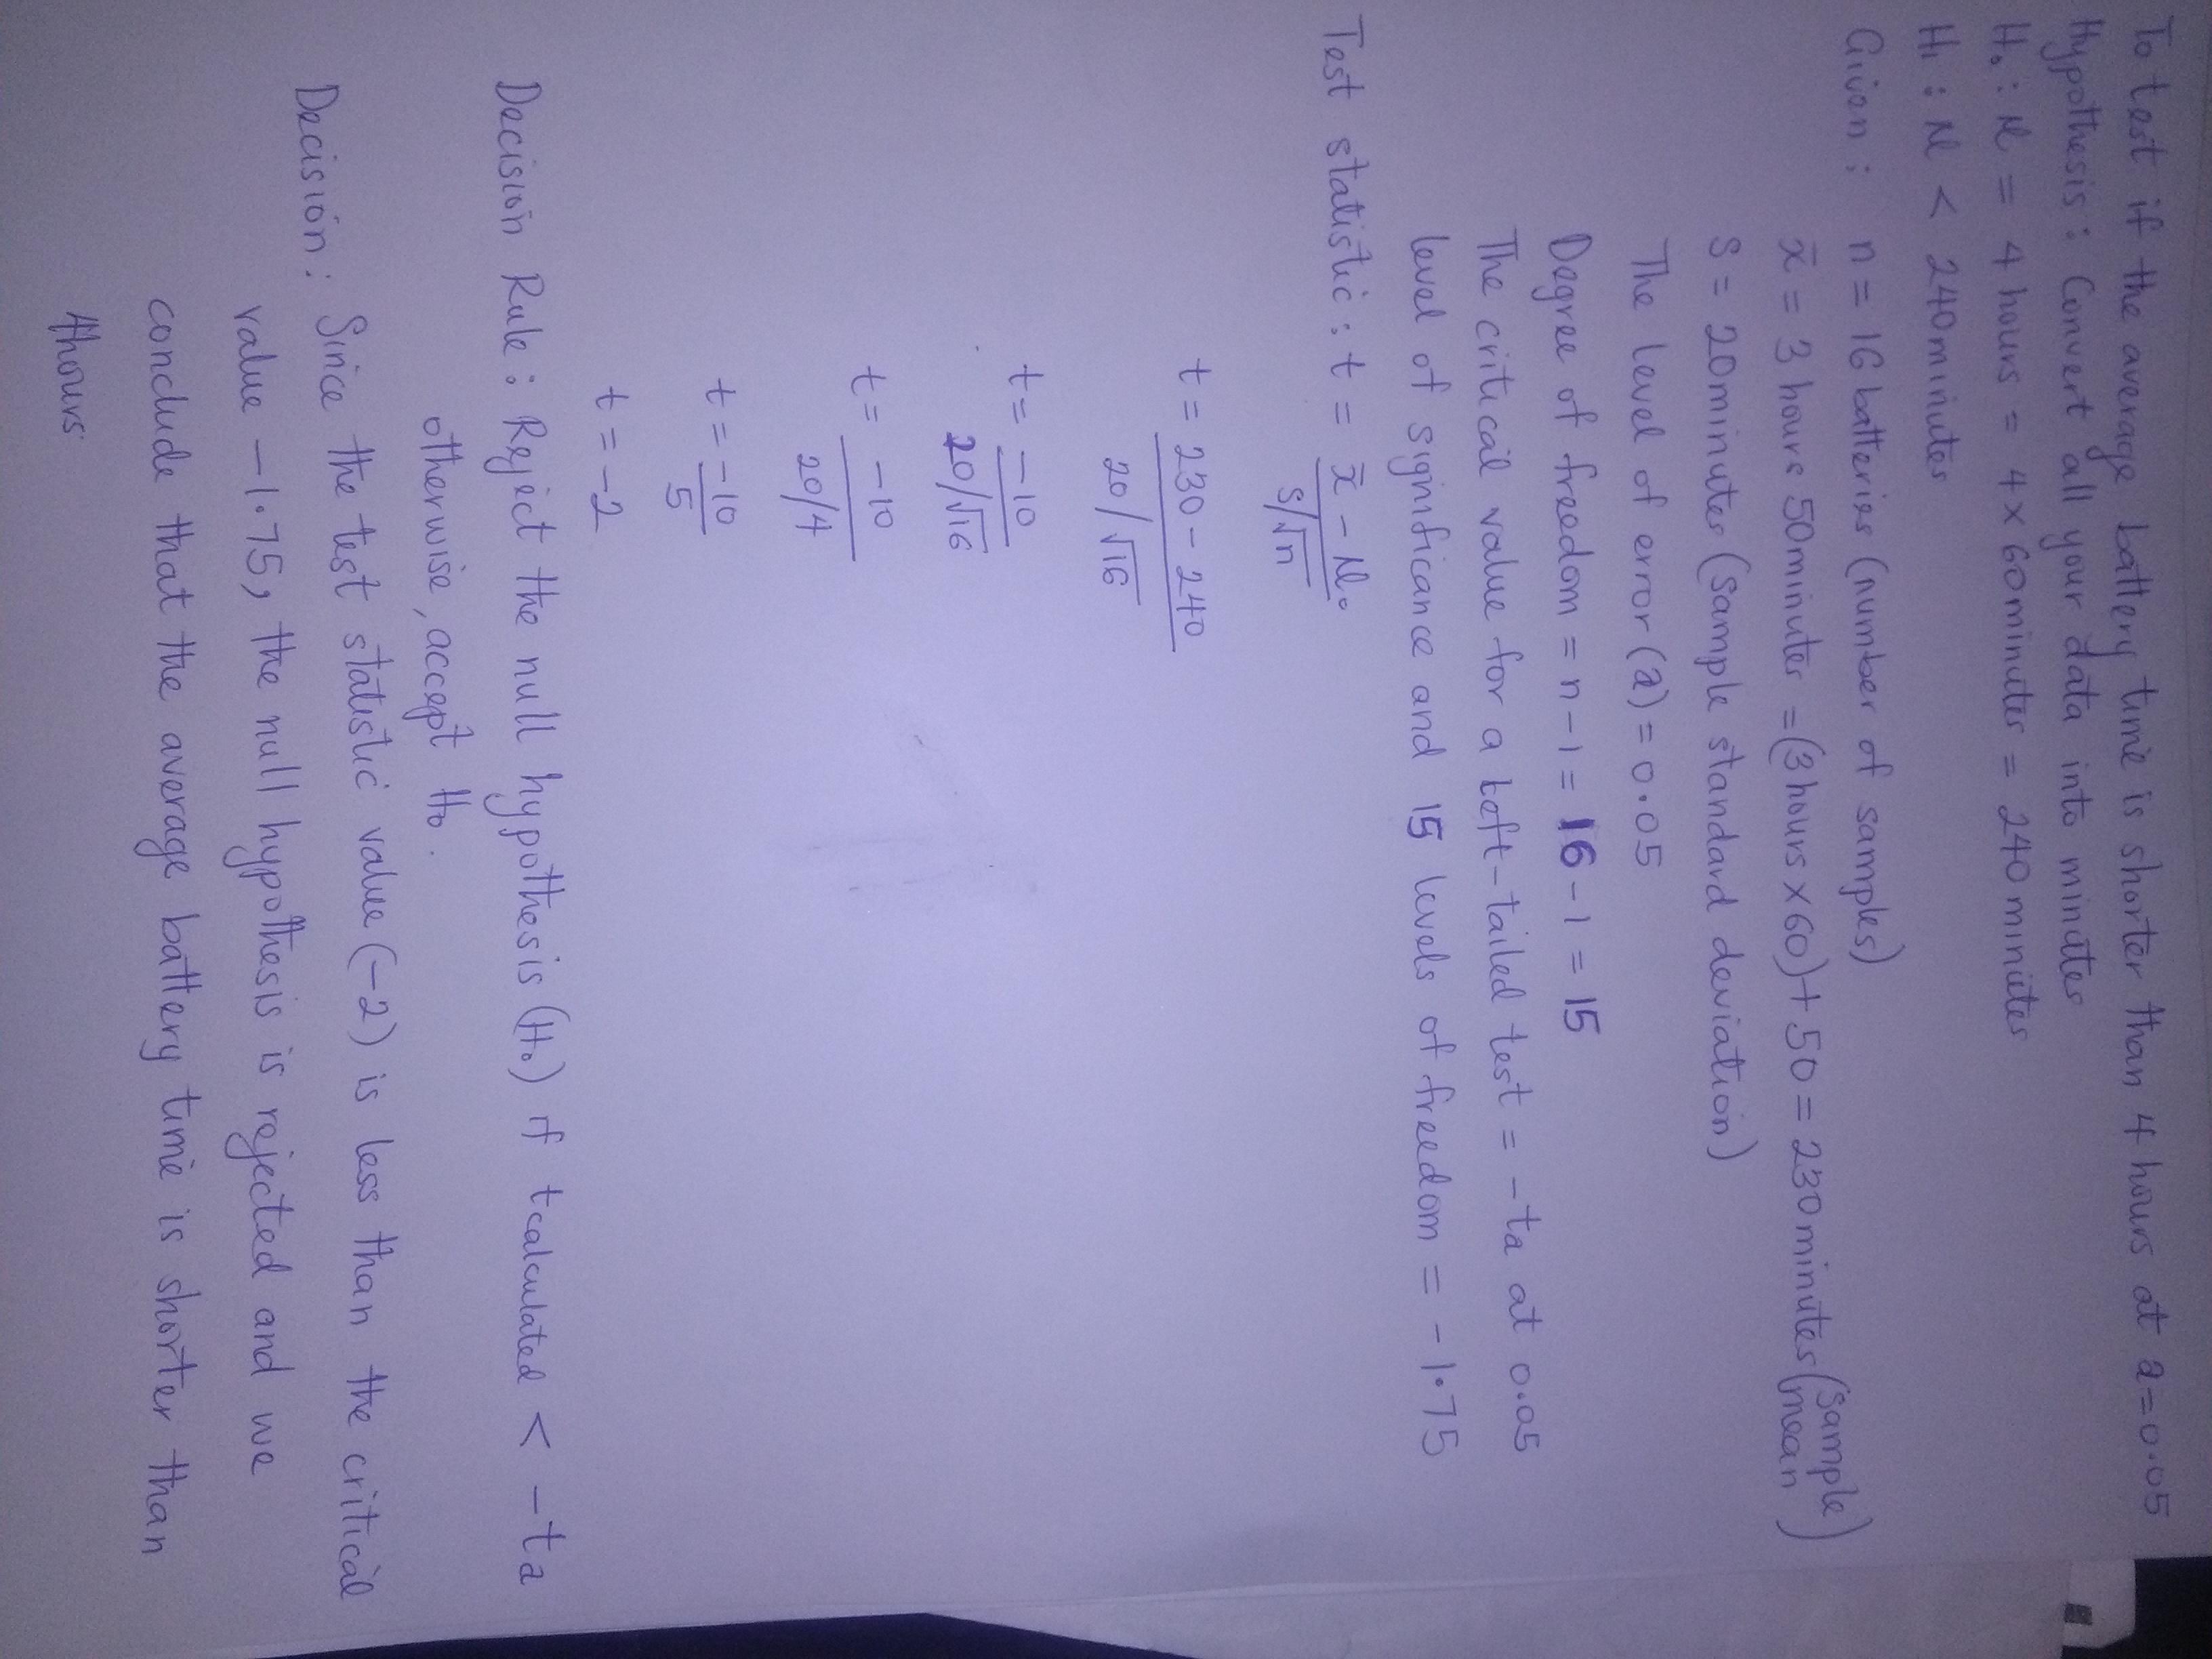 To test if the average battery time is shorter than 4 hours at a=0.05
Hypothesis: Convert all your data into minutes
H₀: μ = 4 hours = 4 x 60minutes = 240 minutes
H₁: μ < 240minutes
Given: n = 16 batteries (number of samples)
x̄ = 3 hours 50minutes = (3 hours x 60) + 50 = 230 minutes (sample mean)
S = 20minutes (sample standard deviation)
The level of error (a) = 0.05
Degree of freedom = n - 1 = 16 - 1 = 15
The critical value for a left-tailed test = -ta at 0.05
level of significance and 15 levels of freedom = -1.75
Test statistic: t = x̄ - μ₀
S/√n
t = 230 - 240
20/√16
t = -10
20/√16
t = -10
20/4
t = -10
5
t = -2
Decision Rule: Reject the null hypothesis (H₀) if tcalculated < -ta
otherwise, accept H₀.
Decision: Since the test statistic value (-2) is less than the critical
value -1.75, the null hypothesis is rejected and we
conclude that the average battery time is shorter than
4hours